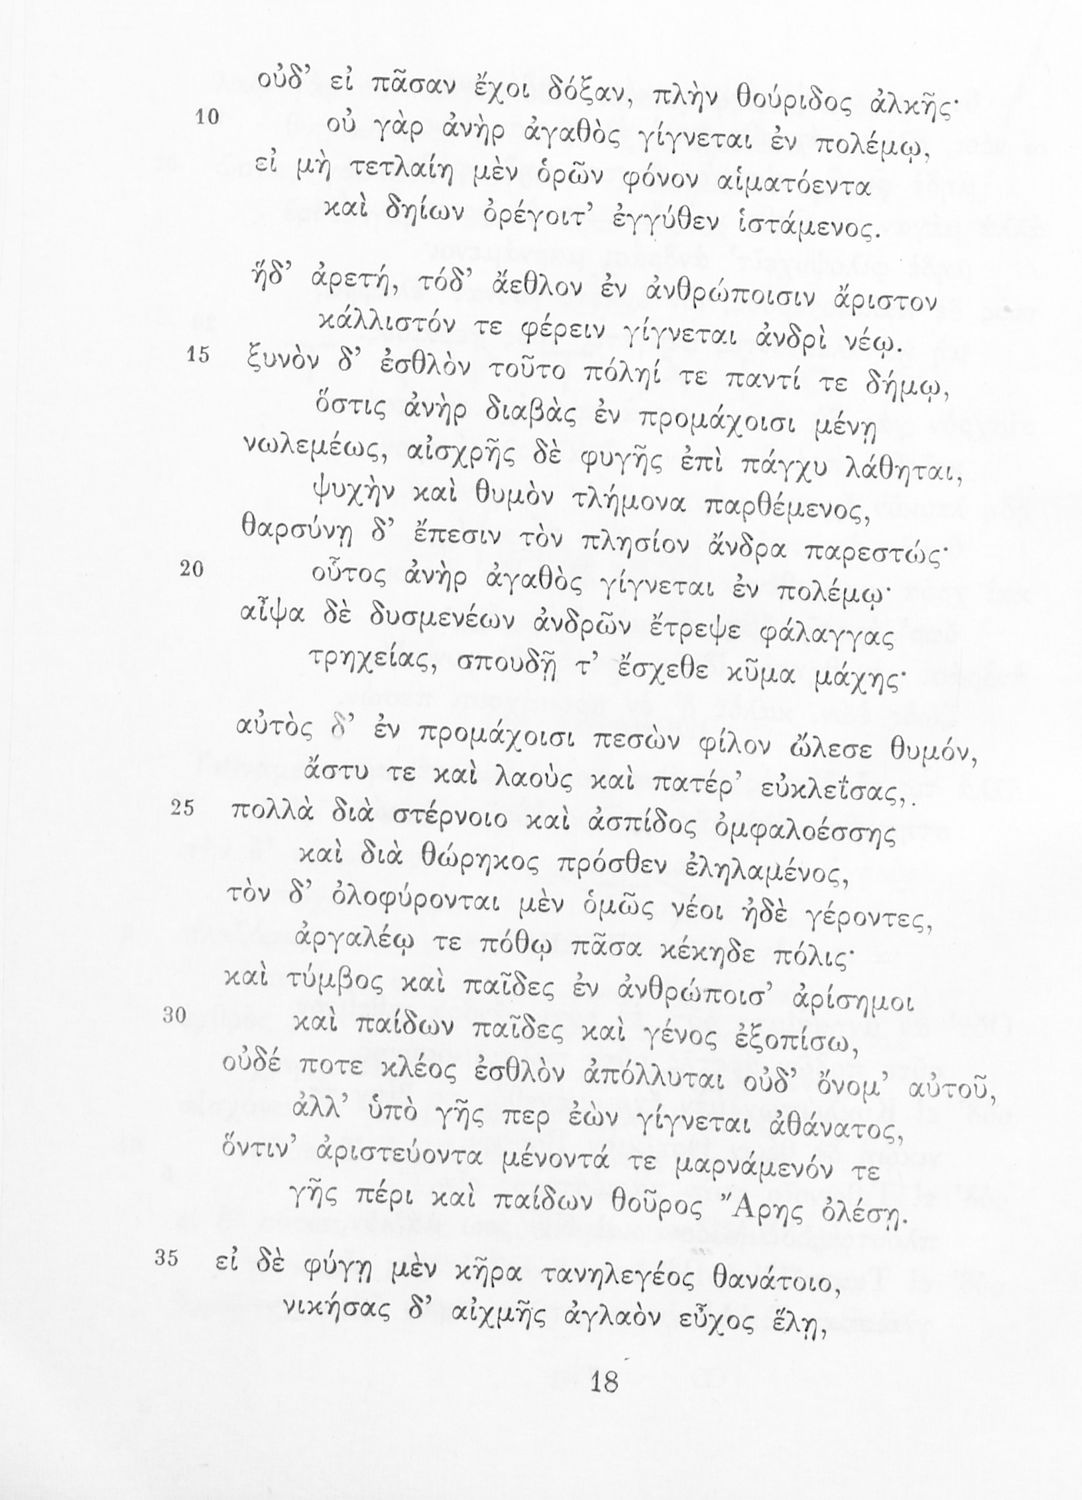 οὐδ’ εἰ πᾶσαν ἔχοι δόξαν, πλὴν θούριδος ἀλκῆς·
10 οὐ γὰρ ἀνὴρ ἀγαθὸς γίγνεται ἐν πολέμῳ,
εἰ μὴ τετλαίη μὲν ὁρῶν φόνον αἱματόεντα
καὶ δηίων ὀρέγοιτ’ ἐγγύθεν ἱστάμενος.
ἥδ’ ἀρετή, τόδ’ ἄεθλον ἐν ἀνθρώποισιν ἄριστον
κάλλιστόν τε φέρειν γίγνεται ἀνδρὶ νέῳ.
15 ξυνὸν δ’ ἐσθλὸν τοῦτο πόληί τε παντί τε δήμῳ,
ὅστις ἀνὴρ διαβὰς ἐν προμάχοισι μένῃ
νωλεμέως, αἰσχρῆς δὲ φυγῆς ἐπὶ πάγχυ λάθηται,
ψυχὴν καὶ θυμὸν τλήμονα παρθέμενος,
θαρσύνῃ δ’ ἔπεσιν τὸν πλησίον ἄνδρα παρεστώς·
20 οὗτος ἀνὴρ ἀγαθὸς γίγνεται ἐν πολέμῳ·
αἶψα δὲ δυσμενέων ἀνδρῶν ἔτρεψε φάλαγγας
τρηχείας, σπουδῇ τ’ ἔσχεθε κῦμα μάχης·
αὐτὸς δ’ ἐν προμάχοισι πεσὼν φίλον ὤλεσε θυμόν,
ἄστυ τε καὶ λαοὺς καὶ πατέρ’ εὐκλεΐσας,
25 πολλὰ διὰ στέρνοιο καὶ ἀσπίδος ὀμφαλοέσσης
καὶ διὰ θώρηκος πρόσθεν ἐληλαμένος,
τὸν δ’ ὀλοφύρονται μὲν ὁμῶς νέοι ἠδὲ γέροντες,
ἀργαλέῳ τε πόθῳ πᾶσα κέκηδε πόλις·
καὶ τύμβος καὶ παῖδες ἐν ἀνθρώποισ’ ἀρίσημοι
30 καὶ παίδων παῖδες καὶ γένος ἐξοπίσω,
οὐδέ ποτε κλέος ἐσθλὸν ἀπόλλυται οὐδ’ ὄνομ’ αὐτοῦ,
ἀλλ’ ὑπὸ γῆς περ ἐὼν γίγνεται ἀθάνατος,
ὅντιν’ ἀριστεύοντα μένοντά τε μαρνάμενόν τε
γῆς πέρι καὶ παίδων θοῦρος Ἄρης ὀλέσῃ.
35 εἰ δὲ φύγῃ μὲν κῆρα τανηλεγέος θανάτοιο,
νικήσας δ’ αἰχμῆς ἀγλαὸν εὖχος ἕλῃ,
18